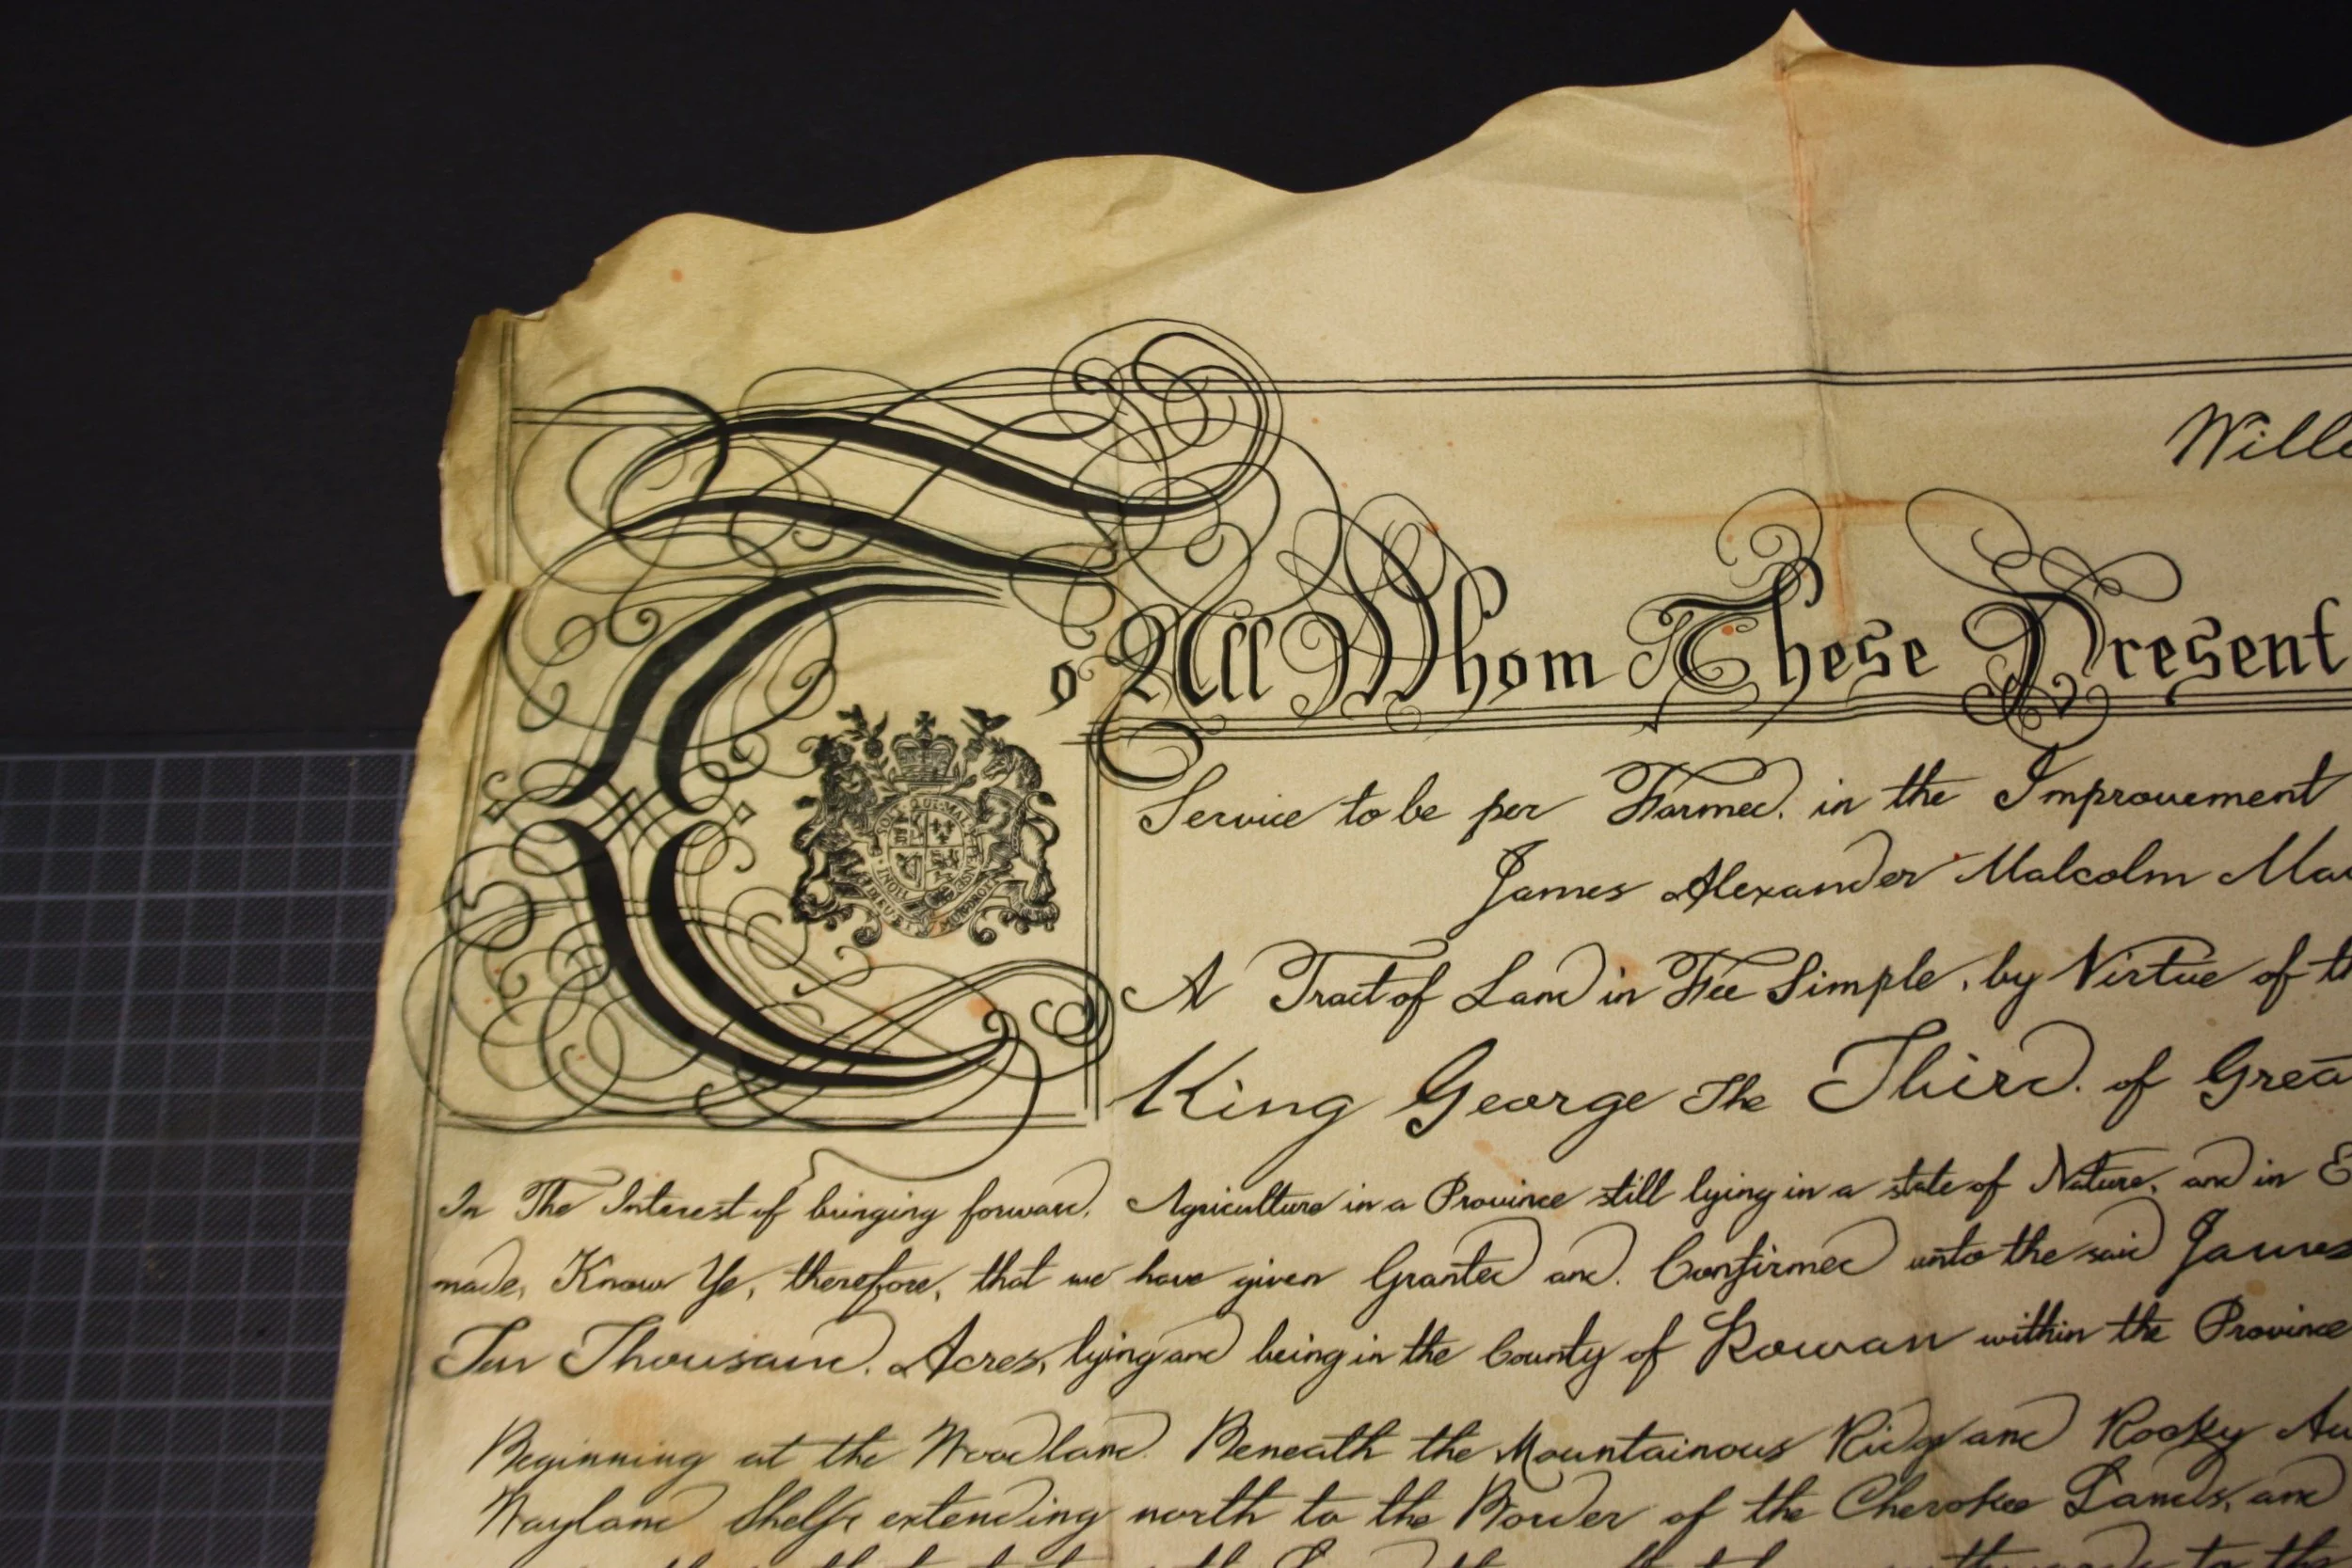 To All Whom These Present
Service to be per Formed. in the Improvement
James Alexander Malcolm
A Tract of Land in Fee Simple, by Virtue of
King George The Third. of
In The Interest of bringing forward, Agriculture in a Province still lying in a state of Nature, and in
made, Know Ye, therefore, that we have given Granted and. Confirmed unto the said James
Ten Thousand. Acres, lying and being in the County of Rowan within the Province
Beginning at the Woodland. Beneath the Mountainous Ridge and Rocky
Wayland Shelfe extending north to the Border of the Cherokee Lands, and